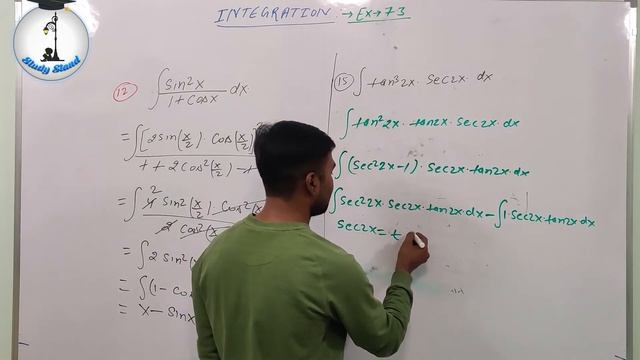 Study Stand
INTEGRATION → Ex → 7.3
(12) ∫ sin²x / 1 + cosx dx
= ∫ [2sin(x/2) · cos(x/2)]²
1 + 2cos²(x/2) - 1
= ∫ 4 2 sin²(x/2) · cos²(x/2)
2 cos²(x
= ∫ 2 sin²(
= ∫ (1 - co
= x - sinx
(15) ∫ tan³2x · sec2x · dx
∫ tan²2x · tan2x · sec2x · dx
∫ (sec²2x-1) · sec2x · tan2x dx
∫ sec²2x · sec2x · tan2x · dx - ∫ 1 · sec2x · tan2x dx
sec2x = t